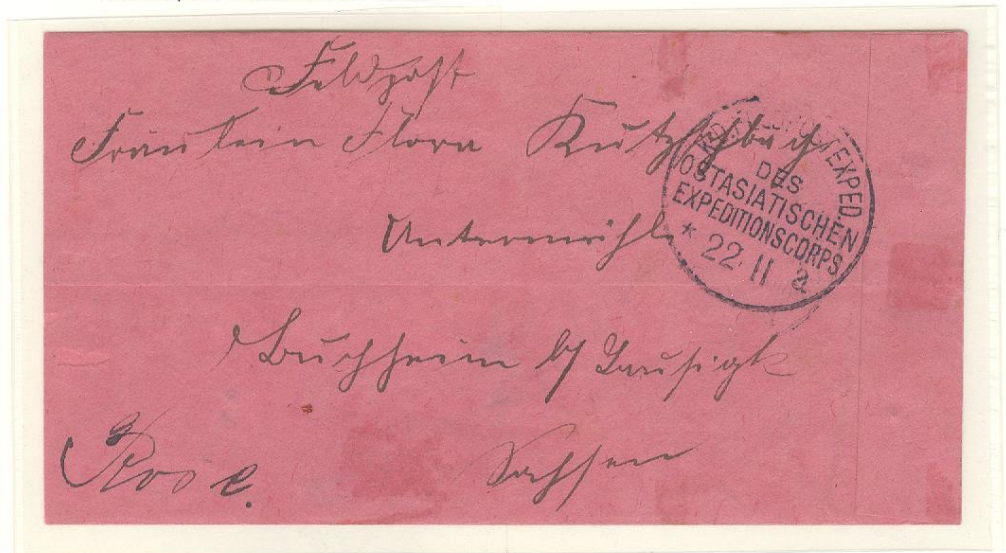 Feldpost
Fräulein Flora Kutzschbach
Untermühle
Buchheim b/ Lausigk
Sachsen
Rose.
EXPED.
DES
OSTASIATISCHEN
EXPEDITIONSCORPS
* 22 II a